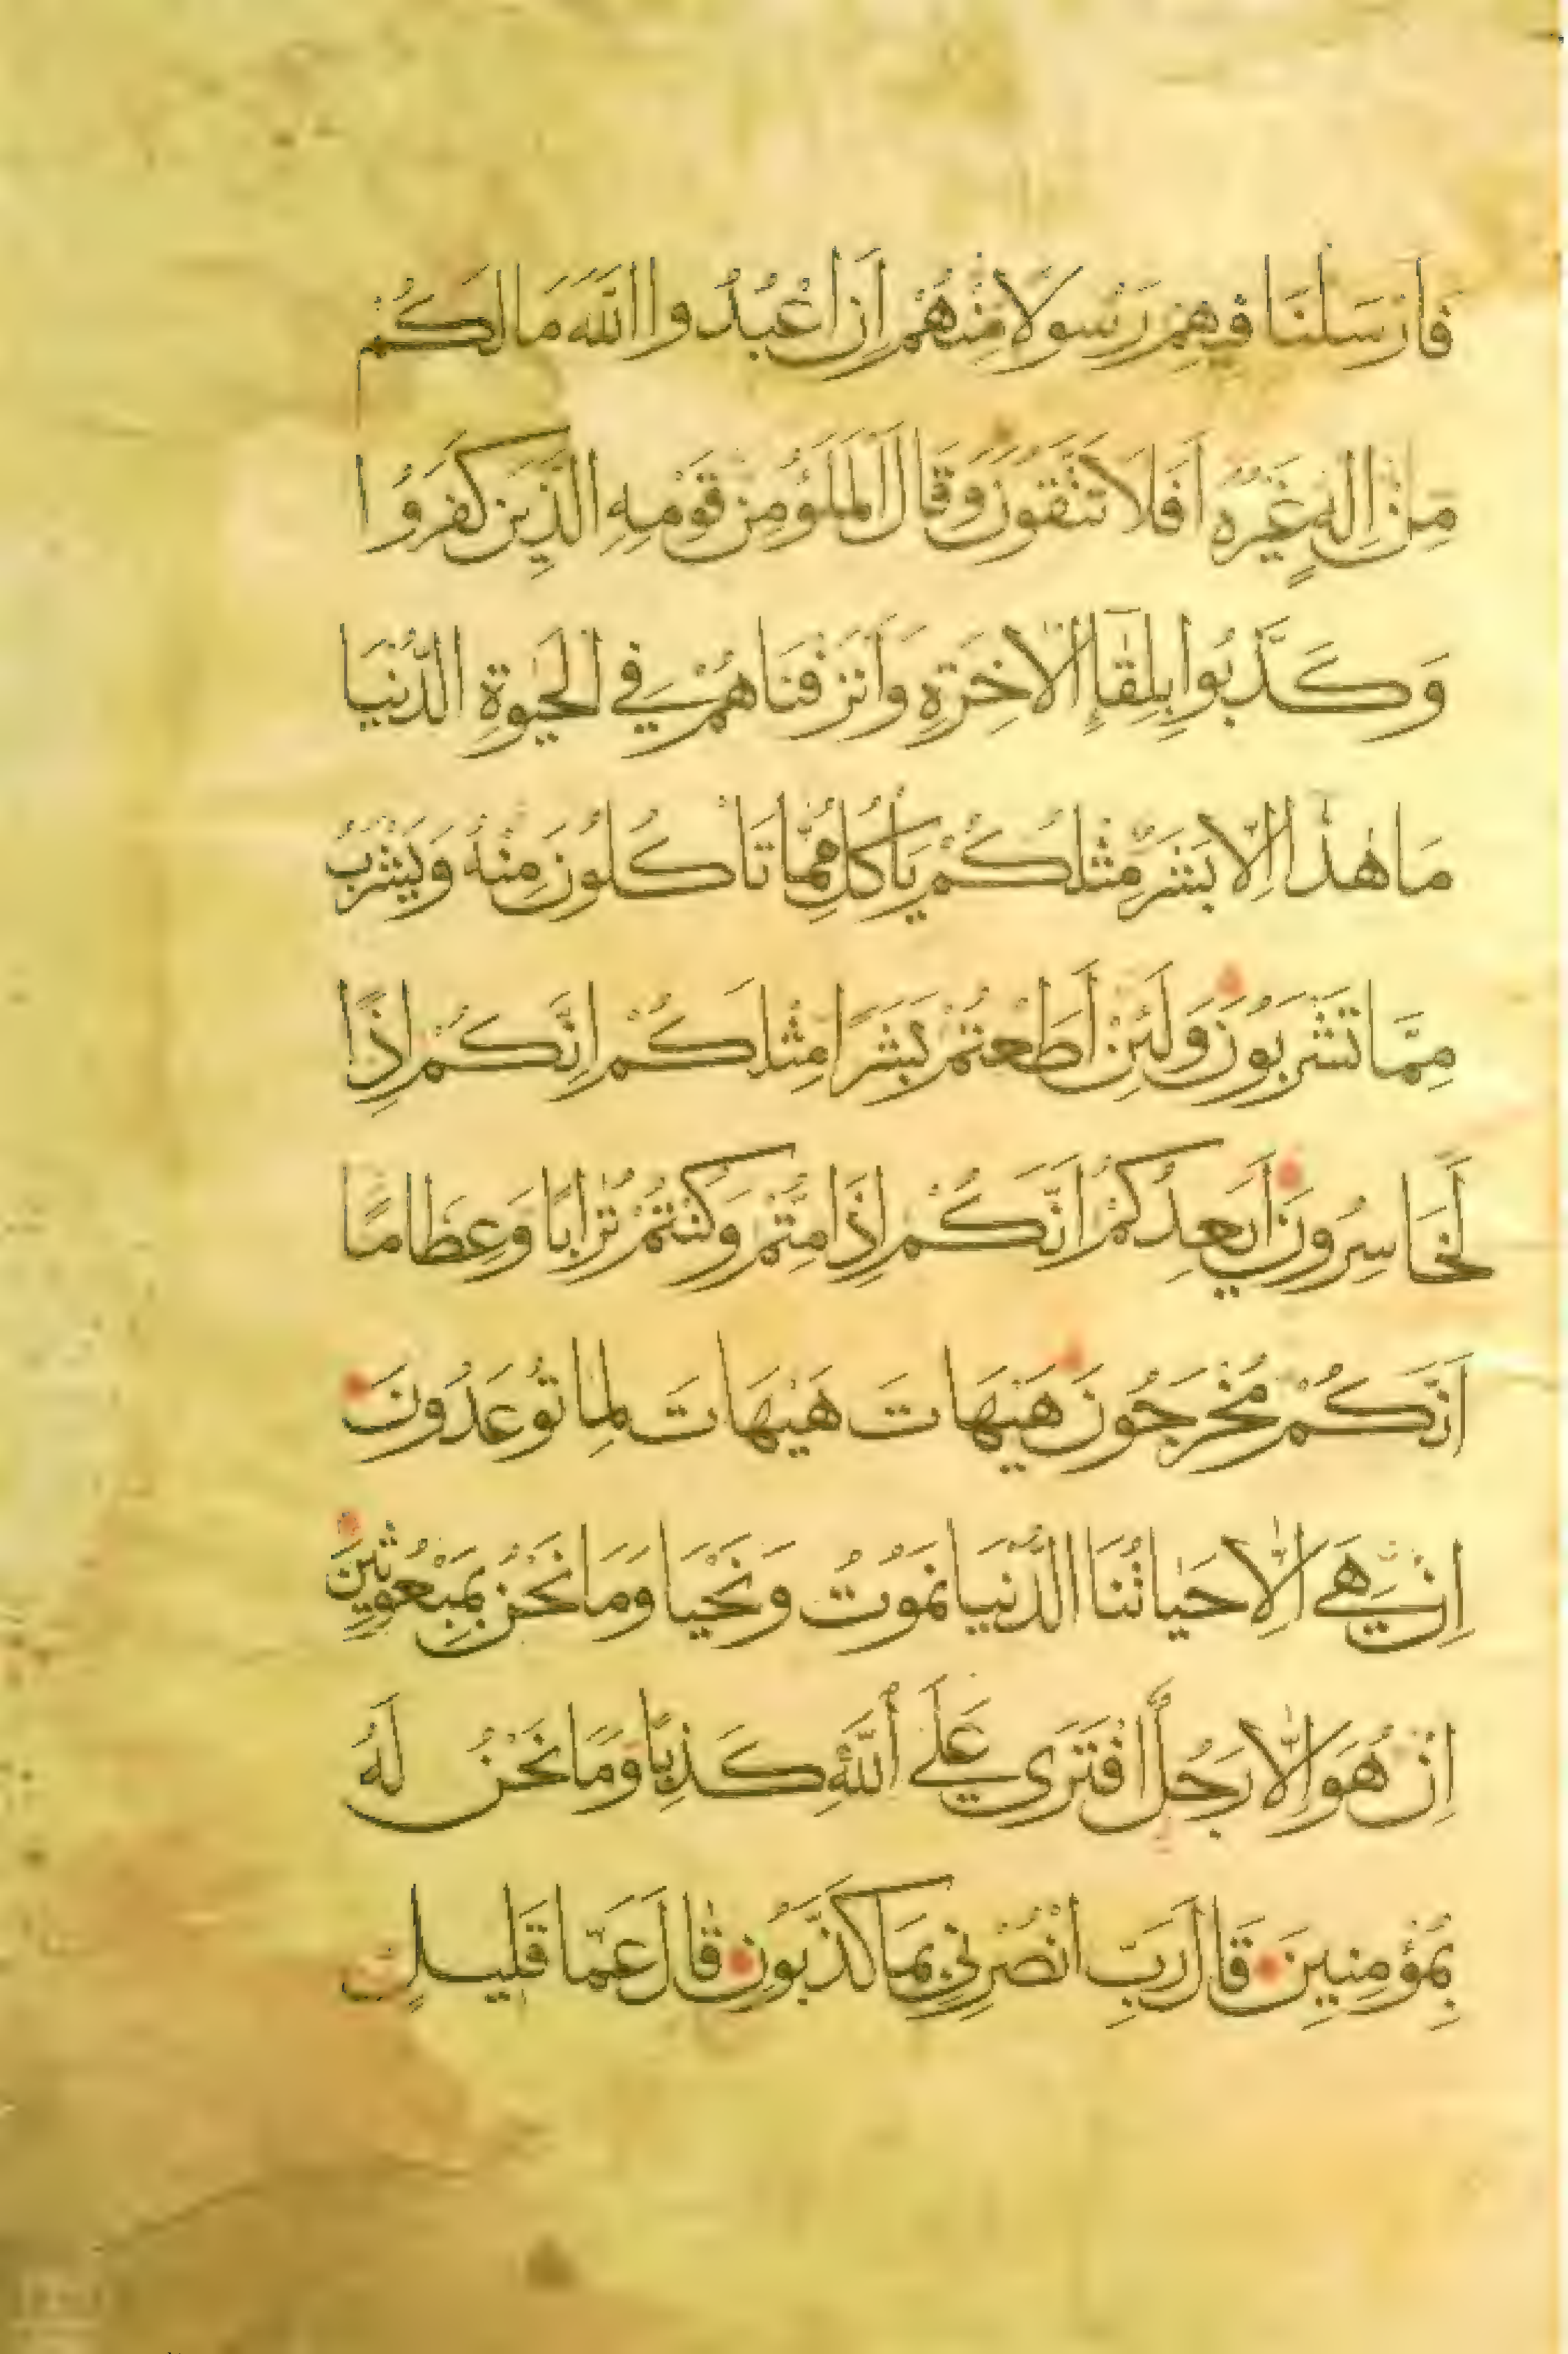 فَاَرْسَلْنَا فِيهِمْ رَسُولًا مِنْهُمْ اَنِ اعْبُدُوا اللّٰهَ مَا لَكُمْ
مِنْ اِلٰهٍ غَيْرُهُ اَفَلَا تَتَّقُونَ وَقَالَ الْمَلَؤُ مِنْ قَوْمِهِ الَّذِينَ كَفَرُوا
وَكَذَّبُوا بِلِقَآءِ الْاٰخِرَةِ وَاَتْرَفْنَاهُمْ فِي الْحَيٰوةِ الدُّنْيَا
مَا هٰذَا اِلَّا بَشَرٌ مِثْلُكُمْ يَاْكُلُ مِمَّا تَاْكُلُونَ مِنْهُ وَيَشْرَبُ
مِمَّا تَشْرَبُونَ وَلَئِنْ اَطَعْتُمْ بَشَرًا مِثْلَكُمْ اِنَّكُمْ اِذًا
لَخَاسِرُونَ اَيَعِدُكُمْ اَنَّكُمْ اِذَا مِتُّمْ وَكُنْتُمْ تُرَابًا وَعِظَامًا
اَنَّكُمْ مُخْرَجُونَ هَيْهَاتَ هَيْهَاتَ لِمَا تُوعَدُونَ
اِنْ هِيَ اِلَّا حَيَاتُنَا الدُّنْيَا نَمُوتُ وَنَحْيَا وَمَا نَحْنُ بِمَبْعُوثِينَ
اِنْ هُوَ اِلَّا رَجُلٌ افْتَرَى عَلَى اللّٰهِ كَذِبًا وَمَا نَحْنُ لَهُ
بِمُؤْمِنِينَ قَالَ رَبِّ انْصُرْنِي بِمَا كَذَّبُونِ قَالَ عَمَّا قَلِيلٍ